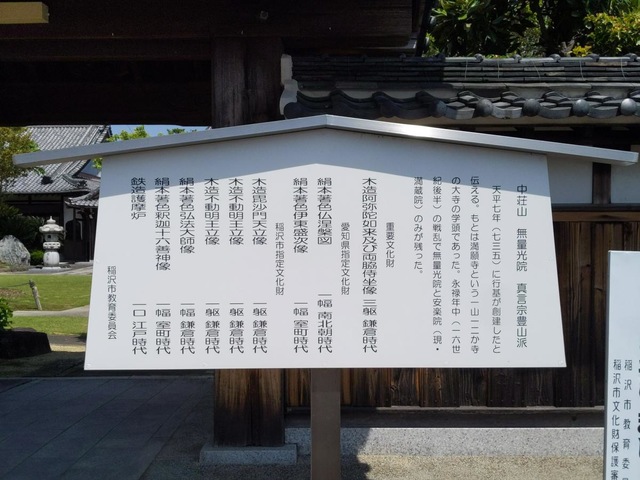 中荘山　無量光院　真言宗豊山派
天平七年（七三五）に行基が創建したと
伝える。もとは満願寺という一山一二か寺
の大寺の学頭であった。永禄年中（一六世
紀後半）の戦乱で無量光院と安楽院（現・
満蔵院）のみが残った。
重要文化財
木造阿弥陀如来及び両脇侍坐像　三躯　鎌倉時代
愛知県指定文化財
絹本著色仏涅槃図　一幅　南北朝時代
絹本著色伊東盛次像　一幅　室町時代
稲沢市指定文化財
木造毘沙門天立像　一躯　鎌倉時代
木造不動明王立像　一躯　鎌倉時代
木造不動明王立像　一躯　鎌倉時代
絹本著色弘法大師像　一幅　鎌倉時代
絹本著色釈迦十六善神像　一幅　室町時代
鉄造護摩炉　一口　江戸時代
稲沢市教育委員会
稲沢市教育委
稲沢市文化財保護審